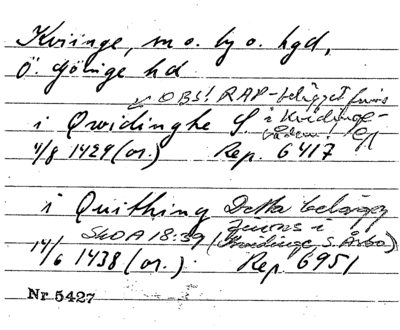 Kviinge, m o. by o. hgd,
Ö. Göinge hd
OBS! RAP-belägget finns
i Qwidinghe S. i Kvidinge-
4/8 1429 (or.) Rep. 6417
i Quithing Detta belägg
finns i
SkOA 18:39 (Kvidinge, S. Åsbo)
14/6 1438 (or.) Rep. 6951
Nr 5427